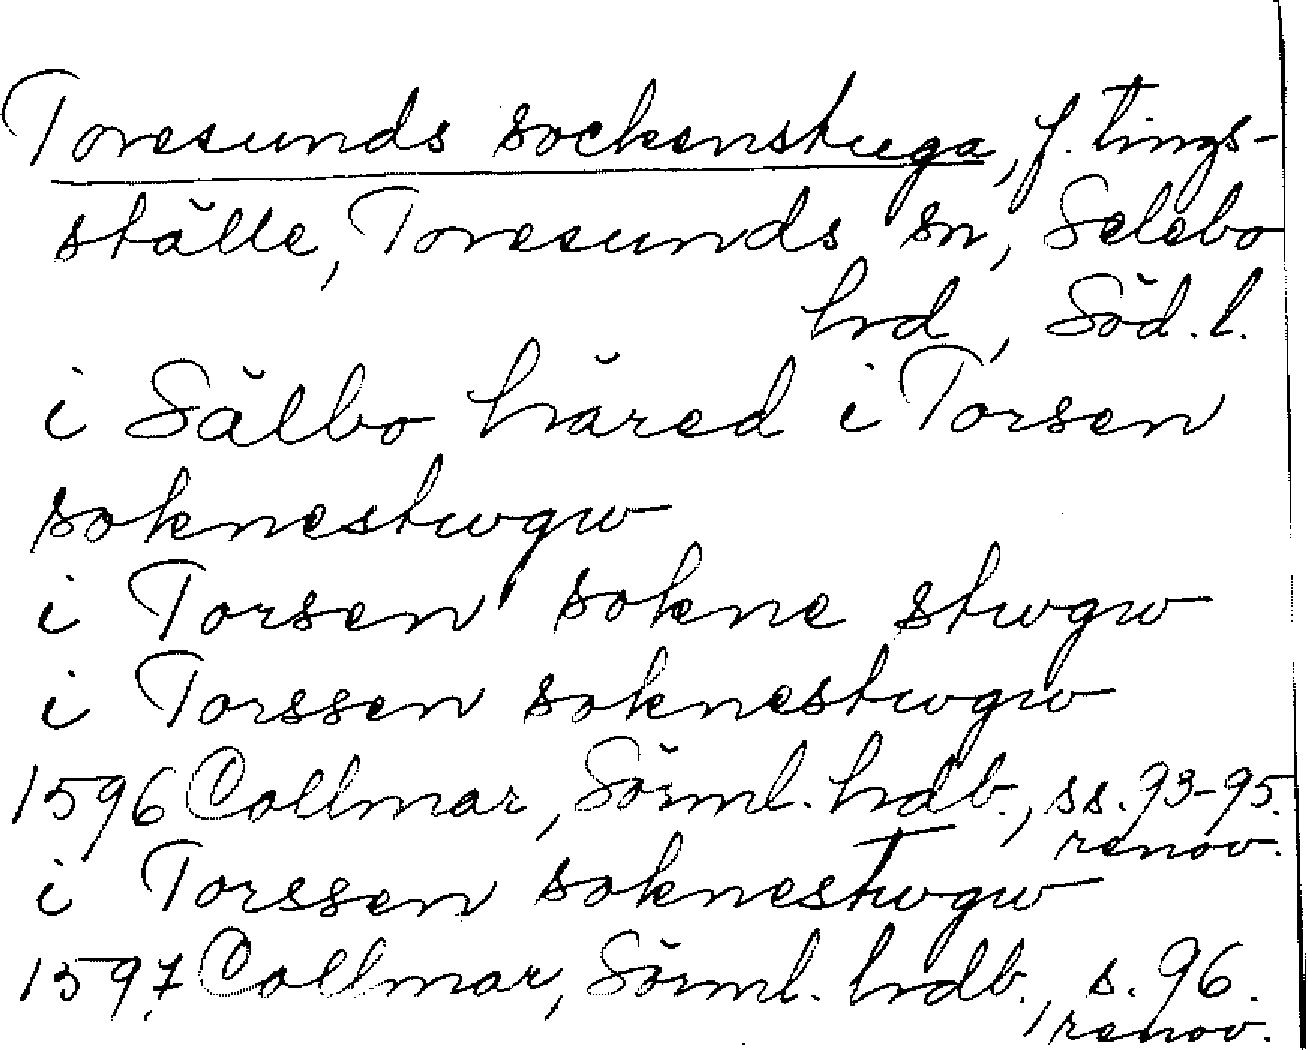 Toresunds sockenstuga, f. tings-
ställe, Toresunds sn, Selebo
hrd, Söd. l.
i Sälbo häred i Torsen
soknestwgw
i Torsen sokne stwgw
i Torssen soknestwgw
1596 Collmar, Sörml. hdb., ss. 93-95.
renov.
i Torssen soknestwgw
1597 Collmar, Sörml. hrdb., s. 96.
renov.